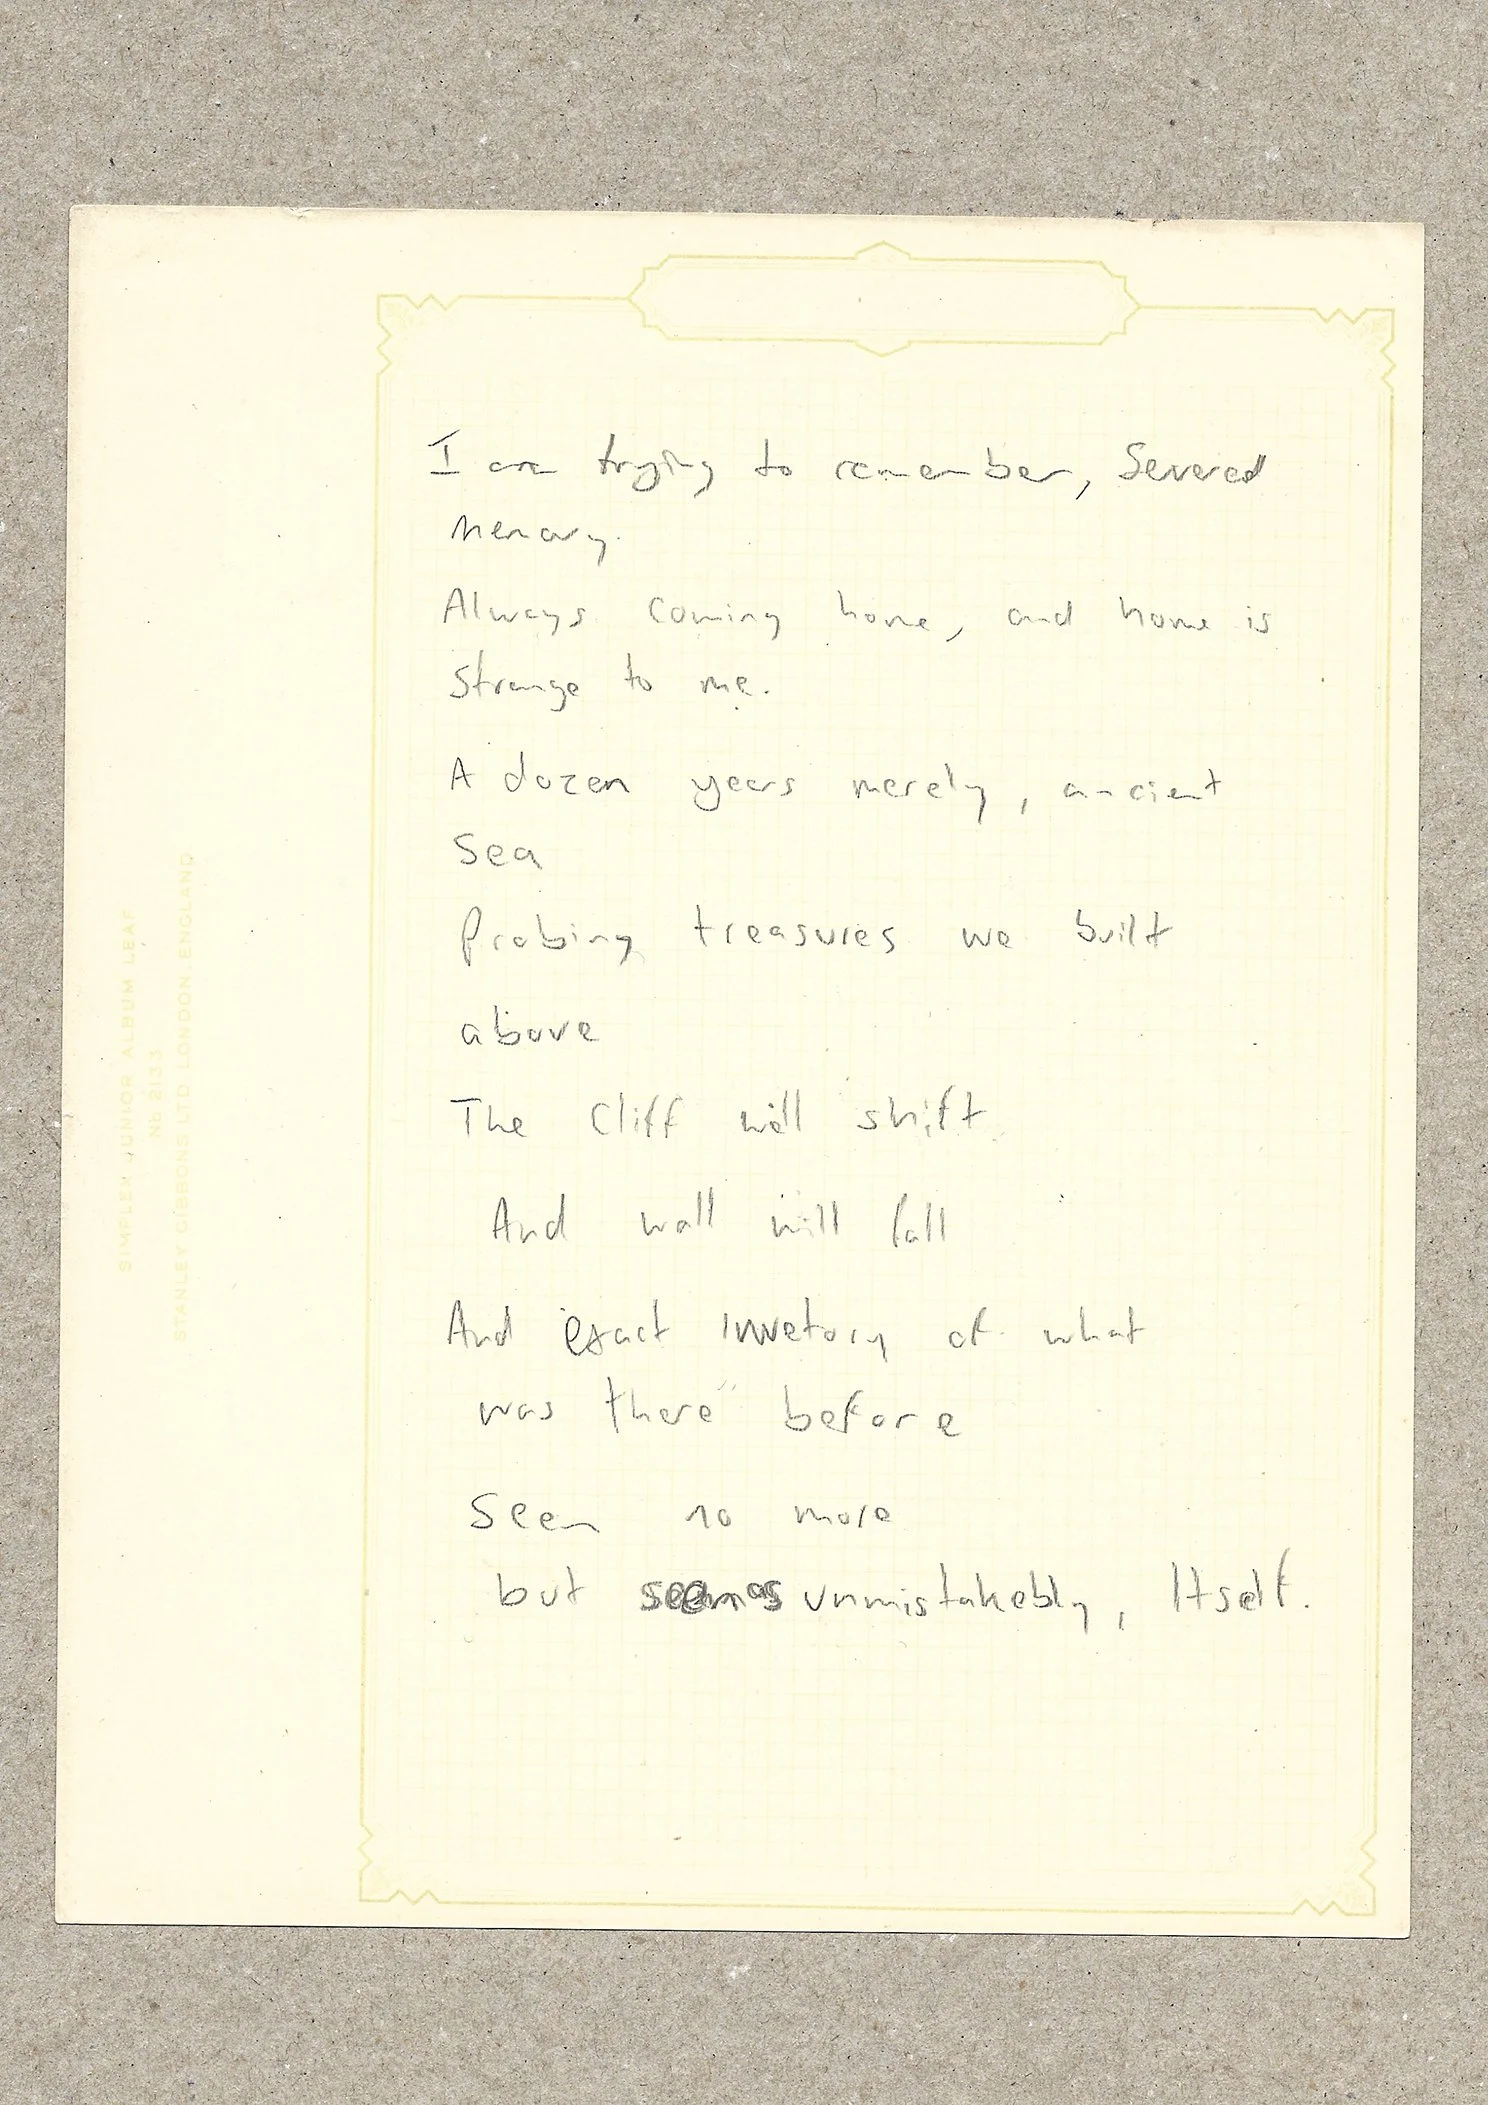 I am trying to remember, Severed
memory.
Always coming home, and home is
strange to me.
A dozen years merely, ancient
Sea
Probing treasures we built
above
The Cliff will shift
And wall will fall
And exact invetory of what
was there before
Seen no more
but unmistakebly, Itself.
SIMPLEX JUNIOR ALBUM LEAF
No 2133
STANLEY GIBBONS LTD LONDON, ENGLAND